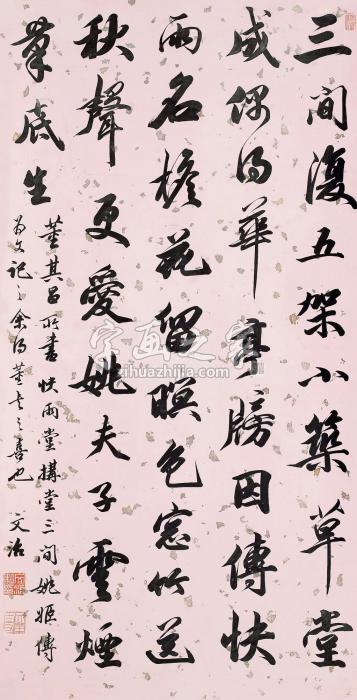 三间复五架小筑草堂
成偶得华亭牓因传快
雨名檐花留暝色窗竹送
秋声更爱姚夫子云烟
笔底生
董其昌所书快雨堂构堂三间姚姬传
为文记之余得董书之喜也 文治
字画之家
zihuazhijia.com